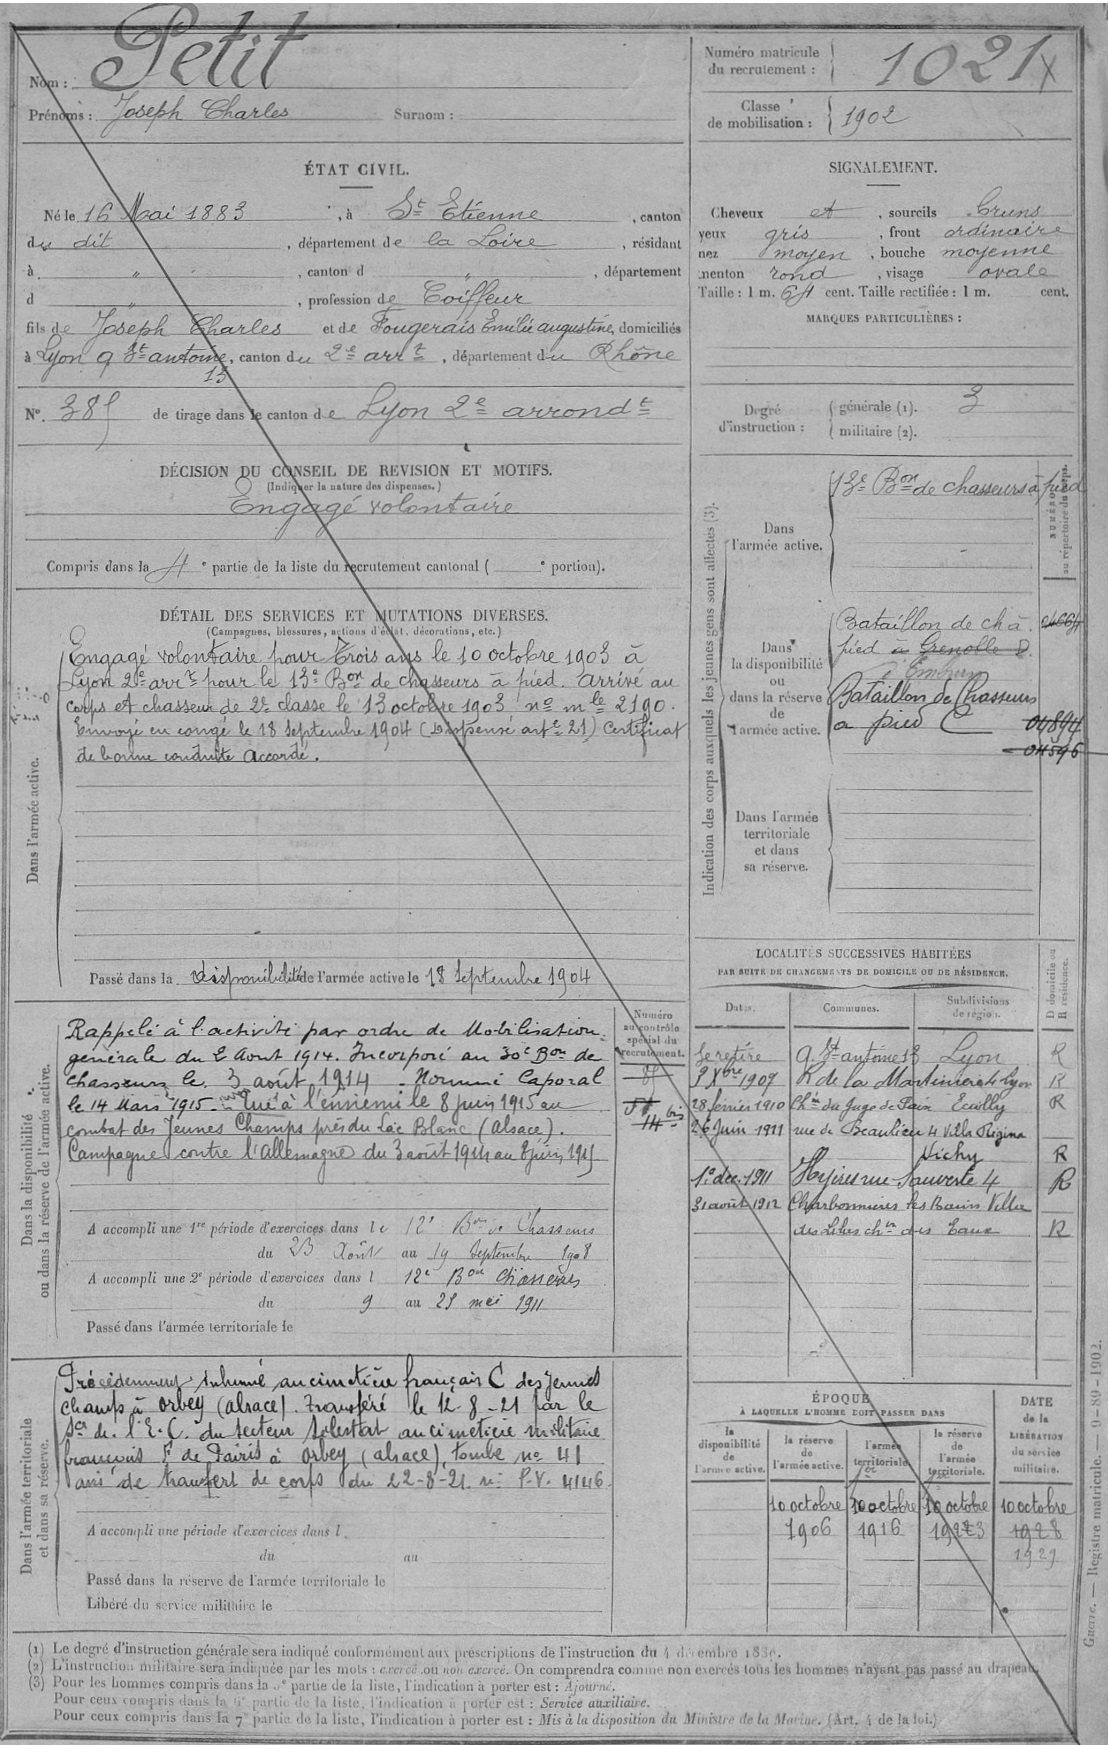 Nom : Petit
Prénoms : Joseph Charles Surnom :
ÉTAT CIVIL.
Né le 16 Mai 1883, à St Etienne, canton
du dit, département de la Loire, résidant
à " , canton d " , département
d " , profession de Coiffeur
fils de Joseph Charles et de Fougerais Emélie augustine, domiciliés
à Lyon q St antoine, canton du 2e arrt, département du Rhône
13
No. 385 de tirage dans le canton de Lyon 2e arrondt
DÉCISION DU CONSEIL DE REVISION ET MOTIFS.
(Indiquer la nature des dispenses.)
Engagé volontaire
Compris dans la 4e partie de la liste du recrutement cantonal ( e portion).
DÉTAIL DES SERVICES ET MUTATIONS DIVERSES.
(Campagnes, blessures, actions d'éclat, décorations, etc.)
Dans l'armée active.
Engagé volontaire pour Trois ans le 10 octobre 1903 à
Lyon 2e arrt pour le 13e Bon de chasseurs à pied. Arrivé au
corps et chasseur de 2e classe le 13 octobre 1903 no mle 2190.
Envoyé en congé le 18 Septembre 1904 (Dispensé arte 21) Certificat
de bonne conduite Accordé.
Passé dans la disponibilité de l'armée active le 18 Septembre 1904
Dans la disponibilité
ou dans la réserve de l'armée active.
Numéro
au contrôle
spécial du
recrutement.
Rappelé à l'activité par ordre de Mobilisation
générale du 2 Aout 1914. Incorporé au 30e Bon de
chasseurs le 3 août 1914 - Nommé Caporal
le 14 Mars 1915 - Tué à l'ennemi le 8 juin 1915 au
combat des Jeunes Champs près du Lac Blanc (Alsace).
Campagne contre l'Allemagne du 3 août 1914 au 8 juin 1915
14 bis
A accompli une 1re période d'exercices dans le 12e Bon de Chasseurs
du 23 Août au 19 Septembre 1908
A accompli une 2e période d'exercices dans l 12e Bon Chasseurs
du 9 au 25 mai 1911
Passé dans l'armée territoriale le
Dans l'armée territoriale
et dans sa réserve.
Précédemment inhumé au cimetière français C des Jeunes
champs à Orbey (alsace). Transféré le 12-8-21 par le
Scr de l'E.C. du secteur Sélestat au cimetière militaire
français F de Pairis à Orbey (alsace), tombe no 41
avis de transfert de corps du 22-8-21 no P.V. 4146.
A accompli une période d'exercices dans l
du au
Passé dans la réserve de l'armée territoriale le
Libéré du service militaire le
Numéro matricule
du recrutement : 1021 x
Classe
de mobilisation : 1902
SIGNALEMENT.
Cheveux et, sourcils bruns
yeux gris, front ordinaire
nez moyen, bouche moyenne
menton rond, visage ovale
Taille : 1 m. 64 cent. Taille rectifiée : 1 m. cent.
MARQUES PARTICULIÈRES :
Degré
d'instruction :
générale (1). 3
militaire (2).
Indication des corps auxquels les jeunes gens sont affectés (3).
NUMÉRO
au répertoire du corps.
Dans
l'armée active.
13e Bon de chasseurs à pied
Dans
la disponibilité
ou
dans la réserve
de
l'armée active.
Bataillon de ch à
pied à Grenoble
d'Embrun
Bataillon de Chasseurs
a pied C 04894
04596
Dans l'armée
territoriale
et dans
sa réserve.
LOCALITÉS SUCCESSIVES HABITÉES
PAR SUITE DE CHANGEMENTS DE DOMICILE OU DE RÉSIDENCE.
Dates. Communes. Subdivisions
de région.
D domicile ou
R résidence.
Se retire q. St antoine 13 Lyon R
Xbre 1907 R de la Martiniere Lyon R
28 février 1910 Chin du Juge de Paix Ecully R
26 Juin 1911 rue de Beaulieu 4 Villa Régina
Vichy R
1e déc. 1911 Hyères rue Sauveste 4 R
31 août 1912 Charbonnières les Bains Villa
des Lilas chin des Eaux R
ÉPOQUE
À LAQUELLE L'HOMME DOIT PASSER DANS
DATE
de la
LIBÉRATION
du service
militaire.
la
disponibilité
de
l'armée active.
la réserve
de
l'armée active.
l'armée
territoriale.
la réserve
de
l'armée
territoriale.
10 octobre 10 octobre 10 octobre 10 octobre
1906 1916 1923 1928
1929
(1) Le degré d'instruction générale sera indiqué conformément aux prescriptions de l'instruction du 4 décembre 1889.
(2) L'instruction militaire sera indiquée par les mots : exercé ou non exercé. On comprendra comme non exercés tous les hommes n'ayant pas passé au drapeau.
(3) Pour les hommes compris dans la 5e partie de la liste, l'indication à porter est : Ajourné.
Pour ceux compris dans la 6e partie de la liste, l'indication à porter est : Service auxiliaire.
Pour ceux compris dans la 7e partie de la liste, l'indication à porter est : Mis à la disposition du Ministre de la Marine. (Art. 4 de la loi.)
Guerre. — Registre matricule. — 9-89-1902.